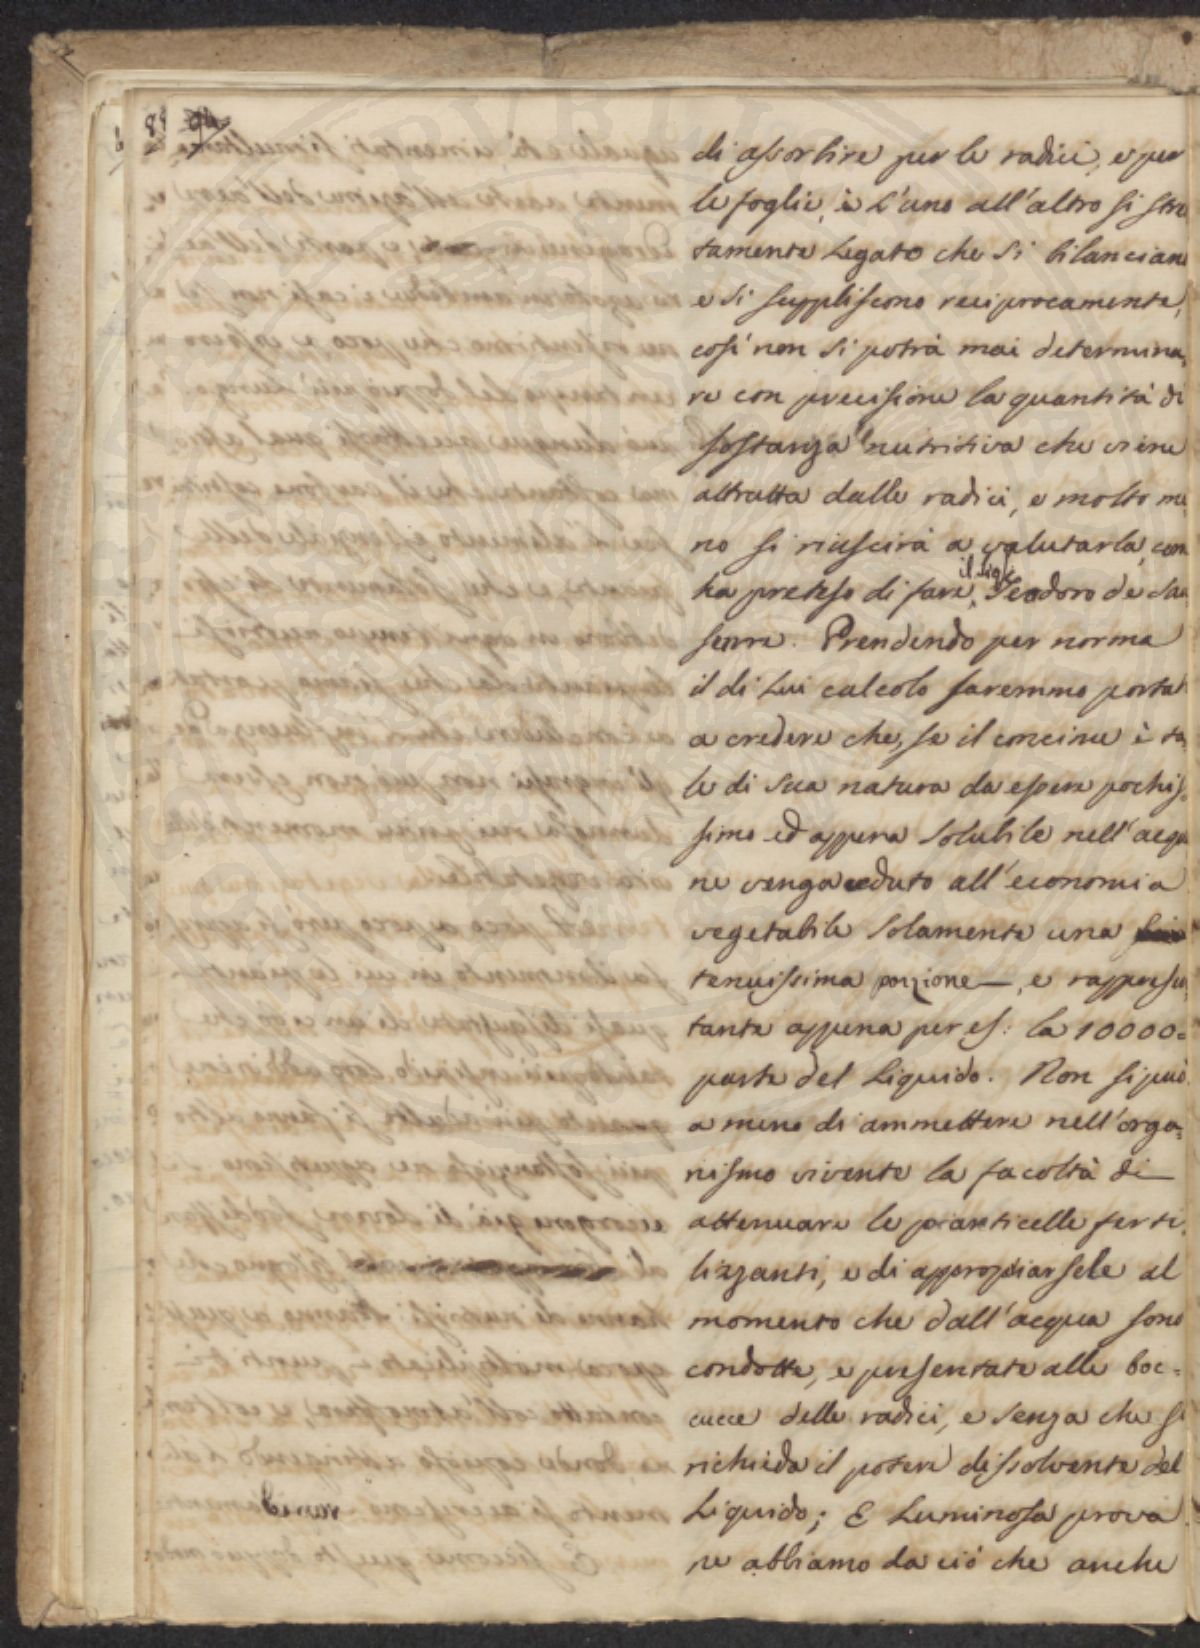 89 94
di assorbire per le radici, e per
le foglie, è l'uno all'altro si stre
tamente Legato che si bilanciano
e si suppliscono reciprocamente,
così non si potrà mai determina,
re con precisione la quantità di
sostanza nutritiva che viene
attratta dalle radici, e molto me
no si riuscirà a valutarla, com
il Sig.
ha preteso di fare, Teodoro de Sau
senre. Prendendo per norma
il di Lui calcolo saremmo portat
a credere che, se il concime è ta,
le di sua natura da essere pochis,
simo ed appena solubile nell'acqu
ne venga ceduto all'economia
vegetabile solamente una
tenuissima porzione—, e rappresen,
tante appena per es: la 10000=
parte del Liquido. Non si può
a meno di ammettere nell'orga,
nismo vivente la facoltà di—
attenuare le pianticelle ferti,
lizzanti, e di appropiarsele al
momento che dall'acqua sono
condotte, e presentate alle boc=
cucce delle radici, e senza che si
richieda il potere dissolvente del
Liquido; E Luminosa prova
ne abbiamo da ciò che anche